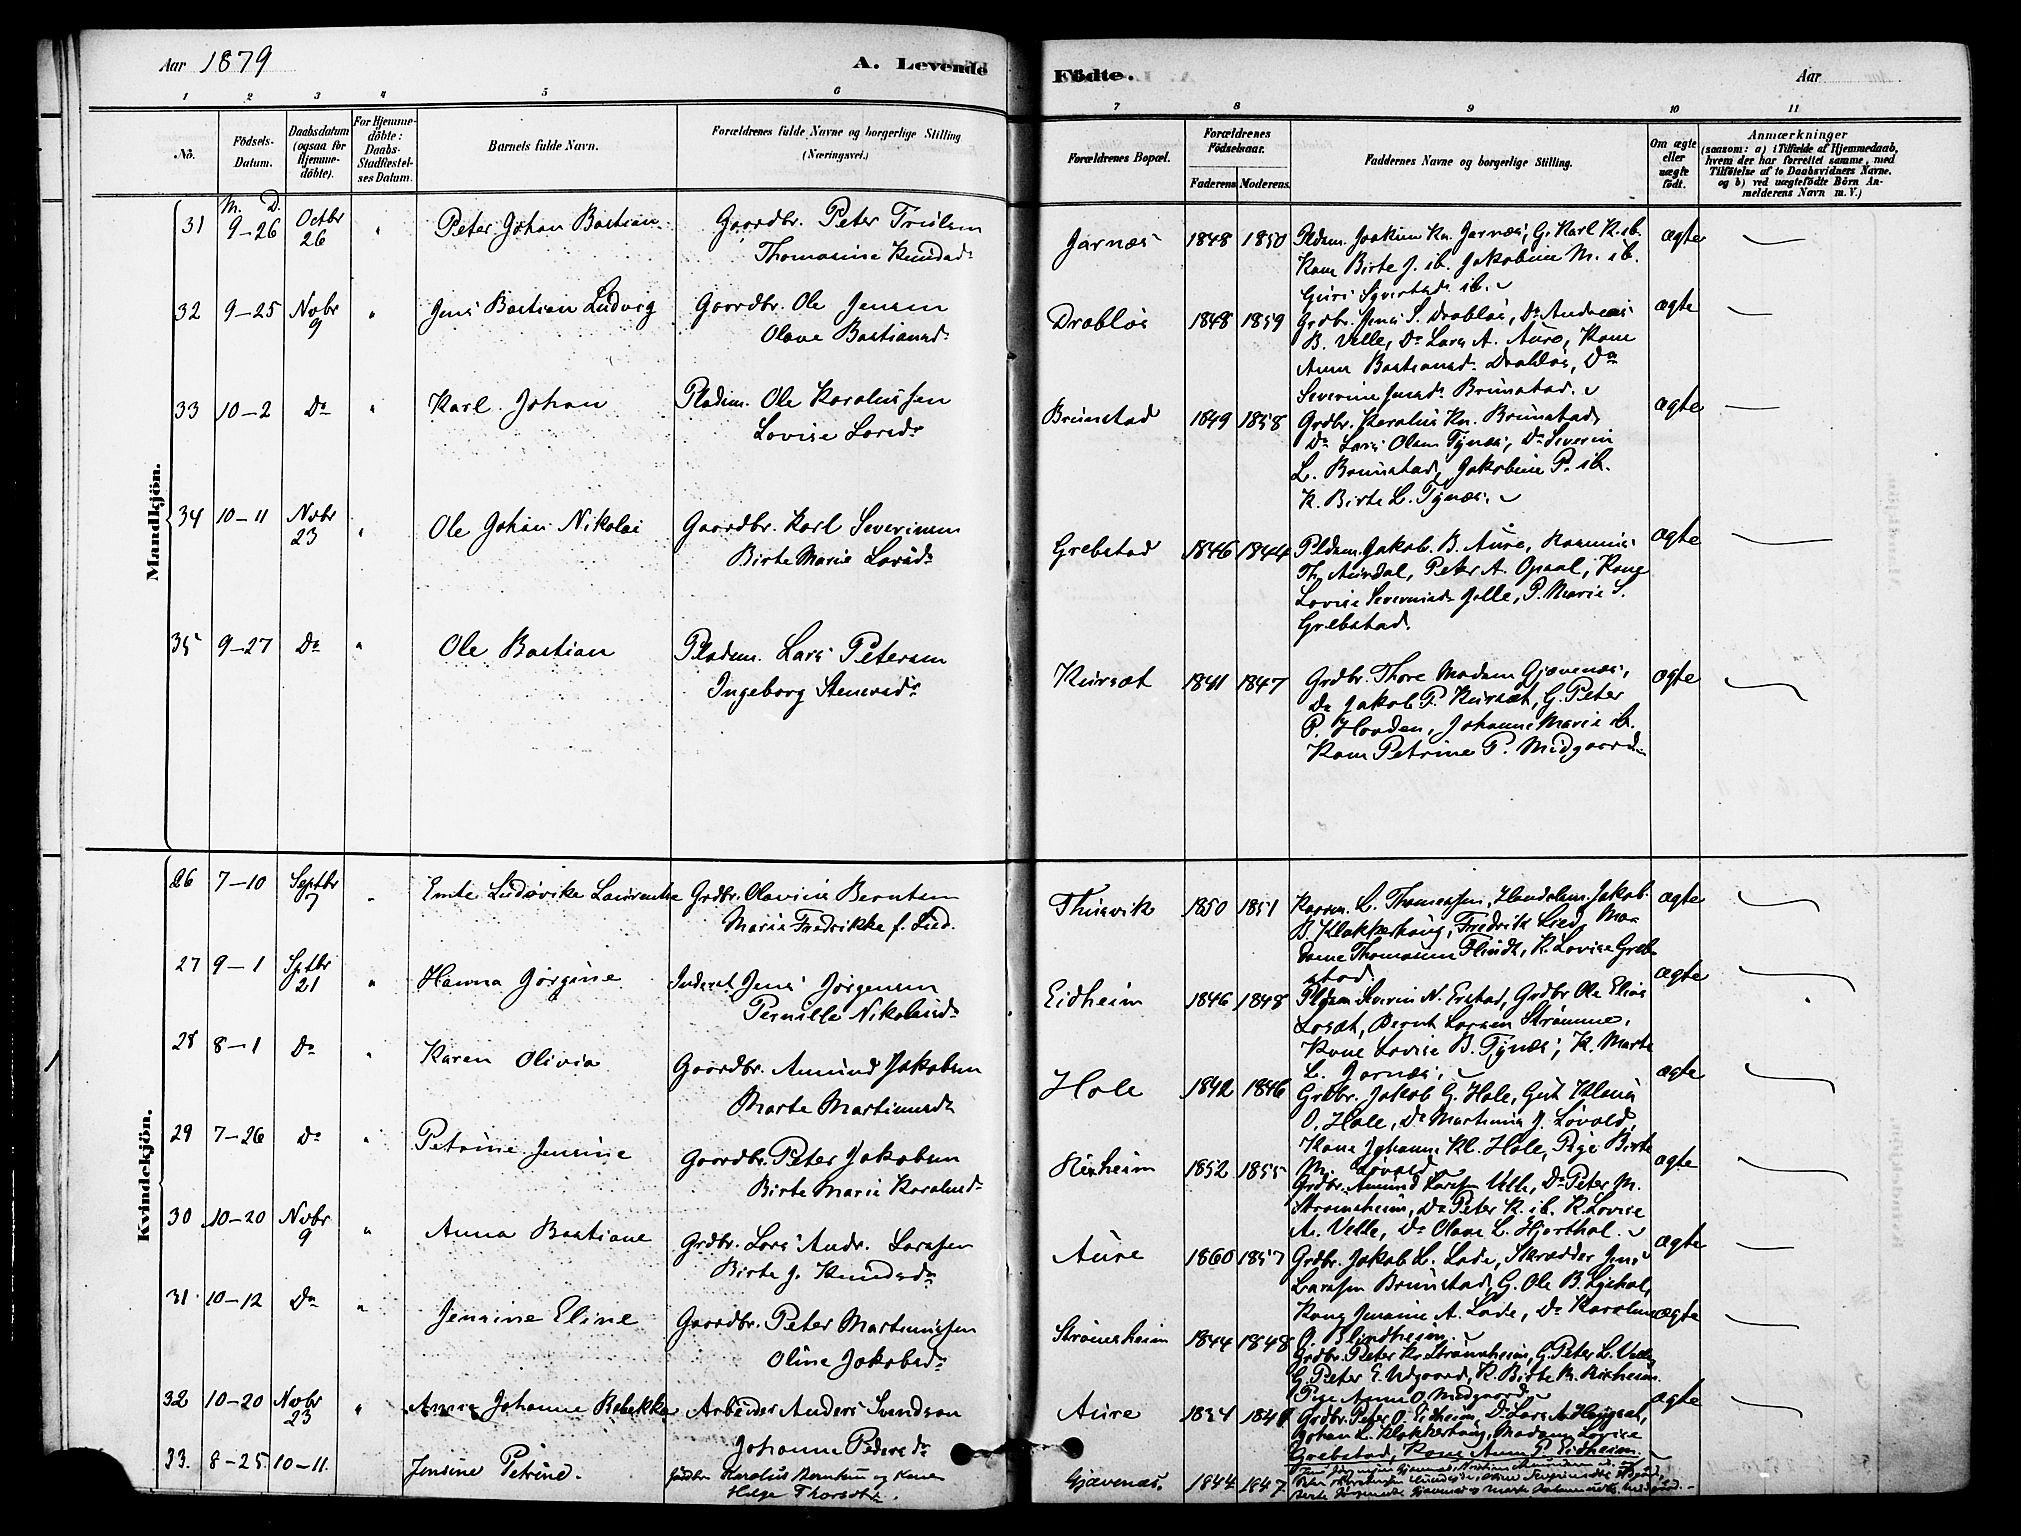 Aar 1879
A. Levende Fødte.
Aar
1 2 3 4 5 6 7 8 9 10 11
No.
Födsels-Datum.
Daabsdatum (ogsaa for Hjemmedöbte).
For Hjemmedöbte: Daabs-Stadfæstelses Datum.
Barnets fulde Navn.
Forældrenes fulde Navne og borgerlige Stilling
(Næringsvei.)
Forældrenes Bopæl.
Forældrenes Fødselsaar.
Faderens Moderens
Faddernes Navne og borgerlige Stilling.
Om ægte eller uægte födt.
Anmærkninger
(saasom: a) i Tilfælde af Hjemmedaab, hvem der har forrettet samme, med Tilføielse af to Daabsvidners Navne. og b) ved uægtefödte Börn Anmelderens Navn m. V.)
M. D.
Mandkjön.
31 9-26 Octbr 26 " Peter Johan Bastian Gaardbr. Peter
Thomasine Knudsd.
Jarnæs 1848 1850 Pldsm. Joakim Kn. Jarnæs, G. Karl K. ib.
Kone Birte J. ib. Jakobine M. ib.
Guri Syvertsd. ib.
ægte
32 9-25 Novbr 9 " Jens Bastian Ludvig Gaardbr. Ole Jensen
Olave Bastiansd.
Drabløs 1848 1859 Grdbr. Jens S. Drabløs, Do Andreas
B. Velle, Do Lars A. Aure, Kone
Anne Bastiansd. Drabløs, Do
Severine Jensd. Brunstad.
ægte
33 10-2 Do " Karl Johan Pladsm. Ole Karolussen
Lovise Larsd.
Brunstad 1849 1858 Grdbr. Karolus Kn. Brunstad,
Do Lars Olsen Tynæs, Do Severin
L. Brunstad, Jakobine P. ib.
K. Birte L. Tynæs.
ægte
34 10-11 Novbr 23 " Ole Johan Nikolai Gaardbr. Karl Severinsen
Birte Marie Larsd.
Grebstad 1846 1844 Pldsm. Jakob B. Aure, Rasmus
Th. Aurdal, Peter A. Opsal, Kone
Lovise Severinsd. Jelle, P. Marie S.
Grebstad.
ægte
35 9-27 Do " Ole Bastian Pladsm. Lars Petersen
Ingeborg Stensd.
Kursæt 1841 1847 Grdbr. Thore Madsen Gjævenæs,
Do Jakob P. Kursæt, G. Peter
P. Hovden, Johanne Marie ib.
Kone Petrine P. Midgaard
ægte
Kvindekjön.
26 7-10 Septbr 7 " Emte Ludovika Laurentse Grdbr. Olavius Berntsen
Marie Fredrikke f. Lied.
Thusvik 1850 1851 L. Thomassen, Handelsm. Jakob
B. Klokkerhaug, Fredrik Lied, Ma-
dame Thomasine Flindt, K. Lovise Greb-
stad.
ægte
27 9-1 Sptbr 21 " Hanna Jørgine Inderst Jens Jørgensen
Pernille Nikolaisd.
Eidheim 1846 1848 Pldsm. Severin N. Erstad, Grdbr Ole Elias
Losæt, Bernt Larsen Strømme,
Kone Lovise B. Tynæs, K. Marte
L. Jarnæs.
ægte
28 8-1 Do " Karen Olivia Gaardbr. Amund Jakobsen
Marte Martinusd.
Hole 1842 1846 Grdbr. Jakob G. Hole, Gut Klaus
O. Hole, Do Martinus J. Løvold,
Kone Johanne Kl. Hole, Pige Birte
M. Løvold
ægte
29 7-26 Do " Petrine Jensine Gaardbr. Peter Jakobsen
Birte Marie Karolusd.
Riksheim 1852 1855 Grdbr. Amund Larsen Velle, Do Peter M.
Stromsheim, Do Peter K. ib. K. Lovise
A. Velle, Do Olave L. Hjorthol.
ægte
30 10-20 Novbr 9 " Anna Bastiane Grdbr. Lars Andr. Larssen
Birte J. Knudsd.
Aure 1860 1857 Grdbr. Jakob L. Lade, Skrædder Jens
Larssen Brunstad, G. Ole B.
Kone Jensine A. Lade, Do Karoline
O. Blindheim.
ægte
31 10-12 Do " Jensine Eline Gaardbr. Peter Martinussen
Oline Jakobsd.
Strømsheim 1844 1848 Grdbr. Peter Kr. Strømsheim, G. Peter L. Velle,
G. Peter E. Udgaard, K. Birte M. Riksheim
Pige Anne O. Midgaard
ægte
32 10-20 Novbr 23 " Anne Johanne Rebekka Arbeider Anders Svendsen
Johanne Pedersd.
Aure 1834 1840 Grdbr. Peter O. Eidheim, Do Lars A. Haugset,
Johan L. Klokkerhaug, Madam Lovise
Grebstad, Kone Anne P. Eidheim.
ægte
33. 8-25 10-11. Jensine Petrine. Gaardbr. Karolus Berntsen og Kone
Helge Thorsdtr.
Gjævenæs. 1844 1847.